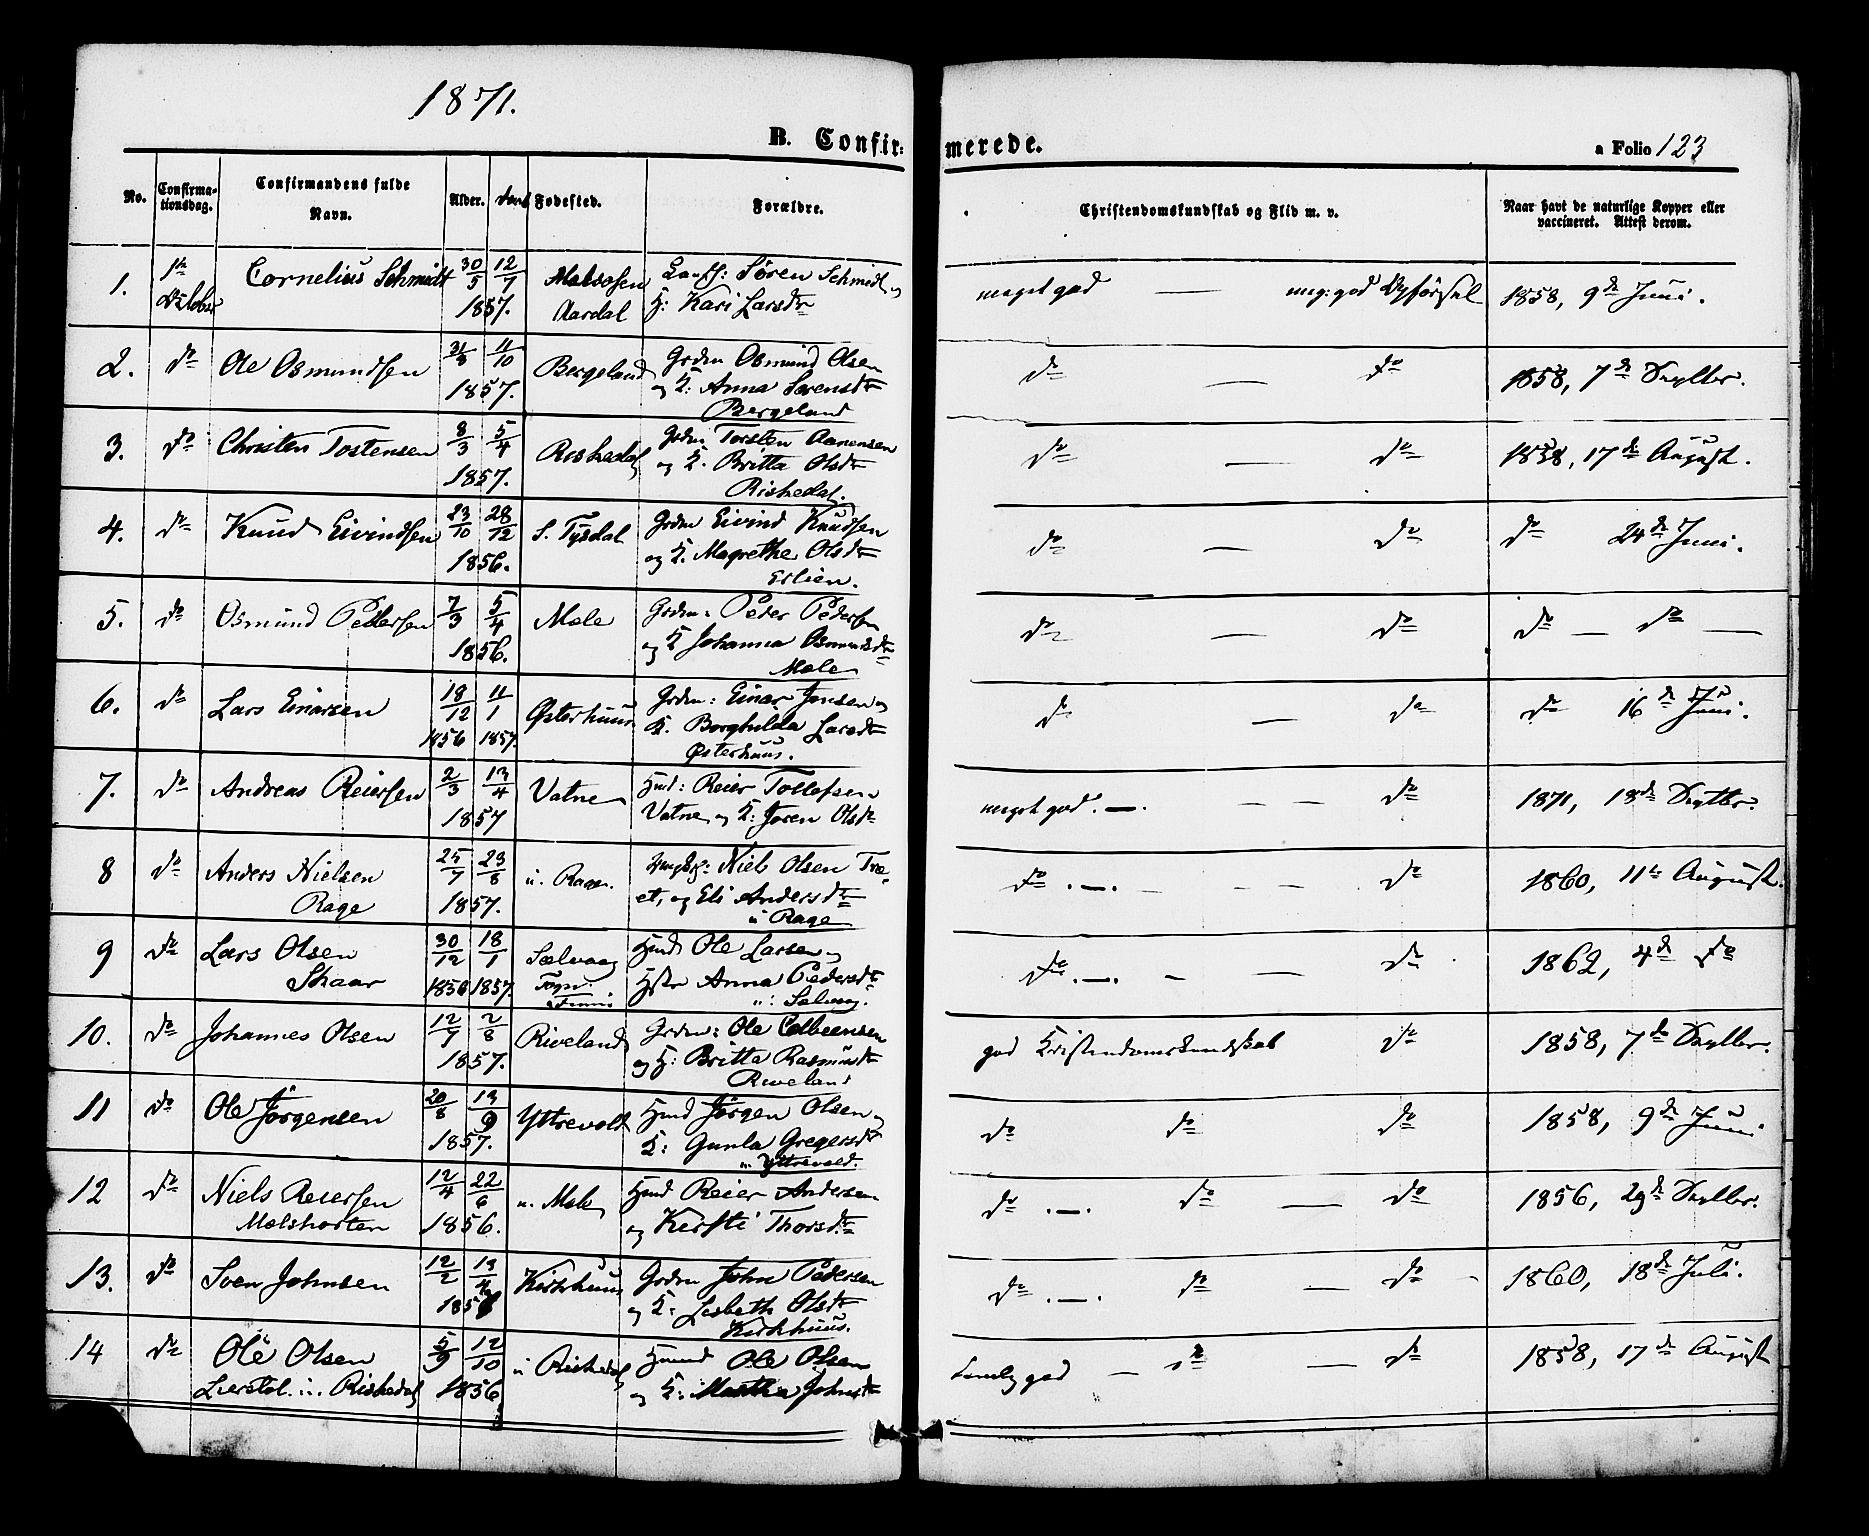 1871.
B. Confir: merede.
a Folio 123
No. Confirma-tionsdag. Confirmandens fulde Navn. Alder. Fødested. Forældre. Christendomskundskab og Flid m. v. Naar havt de naturlige Kopper eller vaccineret. Attest derom.
1. 1ste October Cornelius Schmidt 30/5 12/7 1857. Aardal Søren Schmidt og H: Kari Larsdtr meget god — meg: god Opførsel 1858, 9de Juni.
2. do Ole Osmundsen 31/8 11/10 1857. Bergeland Grdm Osmund Olsen
og K: Anna Sørensdtr
Bergeland
do — do 1858, 7de Septbr.
3. do Christen Tostensen 8/3 5/4 1857. Riskedal Grdm Torsten Aanensen
og K. Britta Olsdtr
Riskedal.
do — do 1858, 17de August.
4. do Knud Eivindsen 23/10 28/12 1856. S. Tysdal Grdm Eivind Knudsen
og K. Magrethe Olsdtr
Erlien.
do — do do 24de Juni.
5. do Osmund Pedersen 7/3 5/4 1856. Mæle Grdm: Peder Pedersen
og K Johanna Osmundsdtr
Mæle
do — do do — do —
6. do Lars Einarsen 18/12 1856 11/1 1857. Østerhuus Grdm: Einar Jonsen og
K. Borghilda Larsdtr
Østerhuus.
do — do do 16de Juni.
7. do Andreas Reiersen 2/3 13/4 1857 Vatne Hmd: Reier Tollefsen
Vatne og K: Joren Olsdtr
meget god. — do 1871, 18de Septbr.
8 do Anders Nielsen
Rage
25/7 23/8 1857. u. Rage. Niels Olsen Træ-
et, og Eli Andersdtr
u Rage
do. — do 1860, 11te August.
9 do Lars Olsen
Skaar
30/12 1856 18/1 1857. Sælvaag
Hmd Ole Larsen og
Hstr Anna Pedersdtr
Selvaag.
do. — do 1862, 4de do
10. do Johannes Olsen 12/7 2/8 1857. Riveland Grdm: Ole Colbeensen
og H: Britta Rasmusdtr
Riveland
god Kristendomskundskab do 1858, 7de Septbr.
11 do Ole Jørgensen 20/8 13/9 1857. Yttrevold Hmd Jørgen Olsen og
K: Gunla Gregersdtr
Yttrevold.
do do do 1858, 9de Juni
12 do Niels Reiersen
Mæleshorten
12/4 22/6 1856. u. Mæle Hmd Reier Andersen
og Kirsti Thorsdtr
do. — do — do 1856, 29de Septbr.
13. do Sven Johnsen 12/2 13/4 Kirkhuus Grdm John Pedersen
og K: Lisbeth Olsdtr
Kirkhuus.
do. — do — do 1860, 18de Juli.
14 do Ole Olsen
u. Riskedal
5/9 12/10 1856 u Riskedal Hmd Ole Olsen
og K: Martha Johnsdtr
temlig god — do — do 1858, 17de August